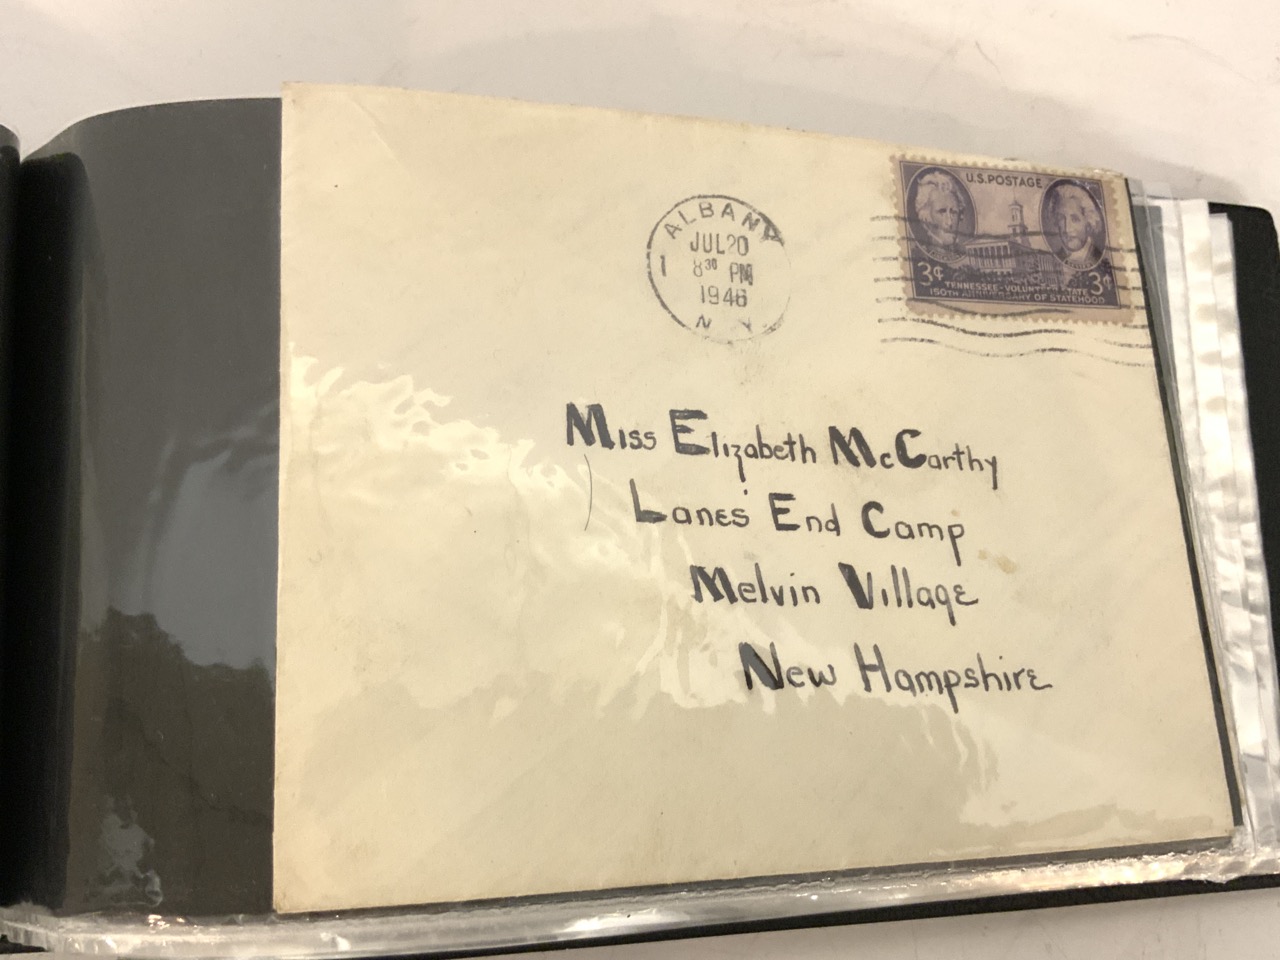 U.S.POSTAGE
3¢ 3¢
TENNESSEE·VOLUNTEER STATE
150TH ANNIVERSARY OF STATEHOOD
ALBANY
JUL 20
1 8³⁰ PM
1946
N.Y.
Miss Elizabeth McCarthy
Lanes' End Camp
Melvin Village
New Hampshire